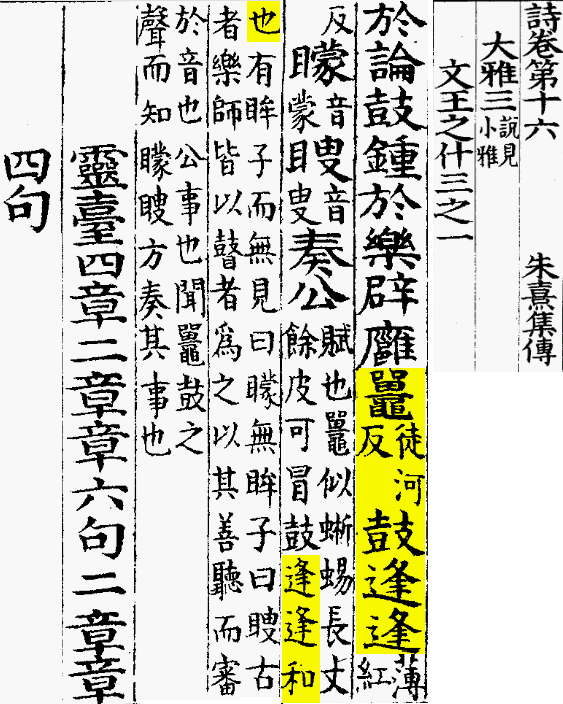 詩卷第十六 朱熹集傳
大雅三 說見小雅
文王之什三之一
於論鼓鍾於樂辟廱鼉徒河反鼓逢逢薄紅
反矇音蒙瞍音叟奏公賦也鼉似蜥蜴長丈餘皮可冒鼓逢逢和
也有眸子而無見曰矇無眸子曰瞍古
者樂師皆以瞽者爲之以其善聽而審
於音也公事也聞鼉鼓之
聲而知矇瞍方奏其事也
靈臺四章二章章六句二章章
四句